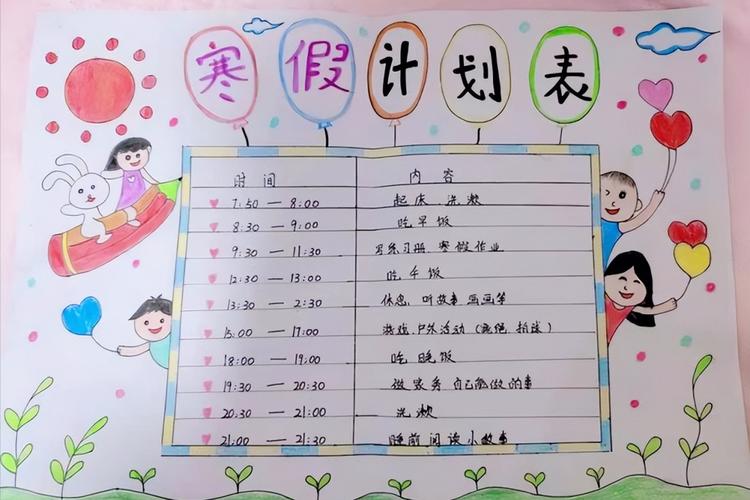 寒假计划表
时间 内容
7:50 — 8:00 起床、洗漱
8:30 — 9:00 吃早饭
9:30 — 11:30 写练习册、寒假作业
12:30 — 13:00 吃午饭
13:30 — 2:30 休息、听故事、画画等
15:00 — 17:00 游戏、户外活动（跳绳、拍球）
18:00 — 19:00 吃晚饭
19:30 — 20:30 做家务 自己能做的事
20:30 — 21:00 洗漱
21:00 — 21:30 睡前阅读小故事